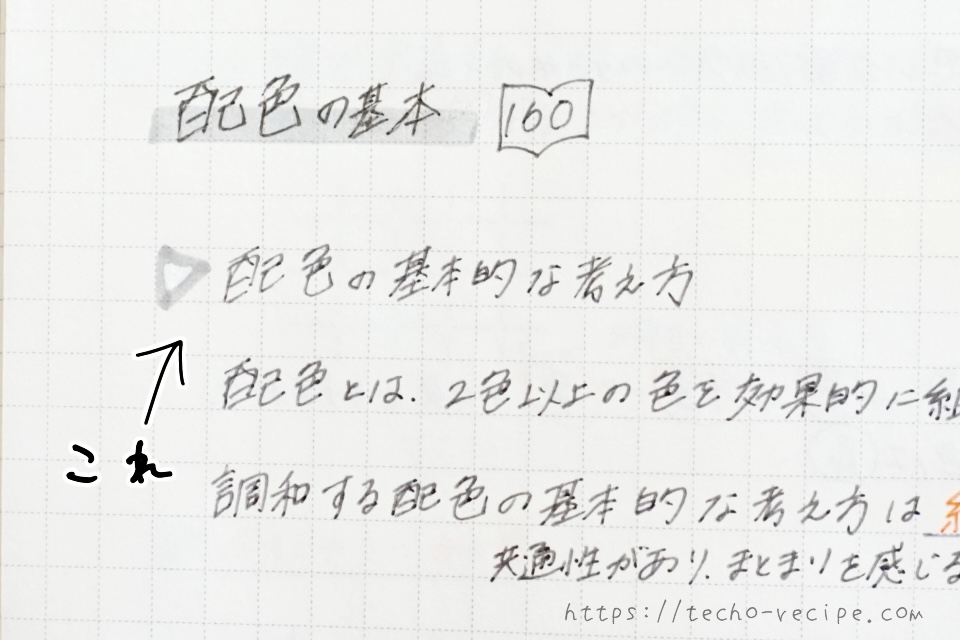 配色の基本 160
配色の基本的な考え方
配色とは、2色以上の色を効果的に組
これ
調和する配色の基本的な考え方は
共通性があり、まとまりを感じる
https://techo-recipe.com